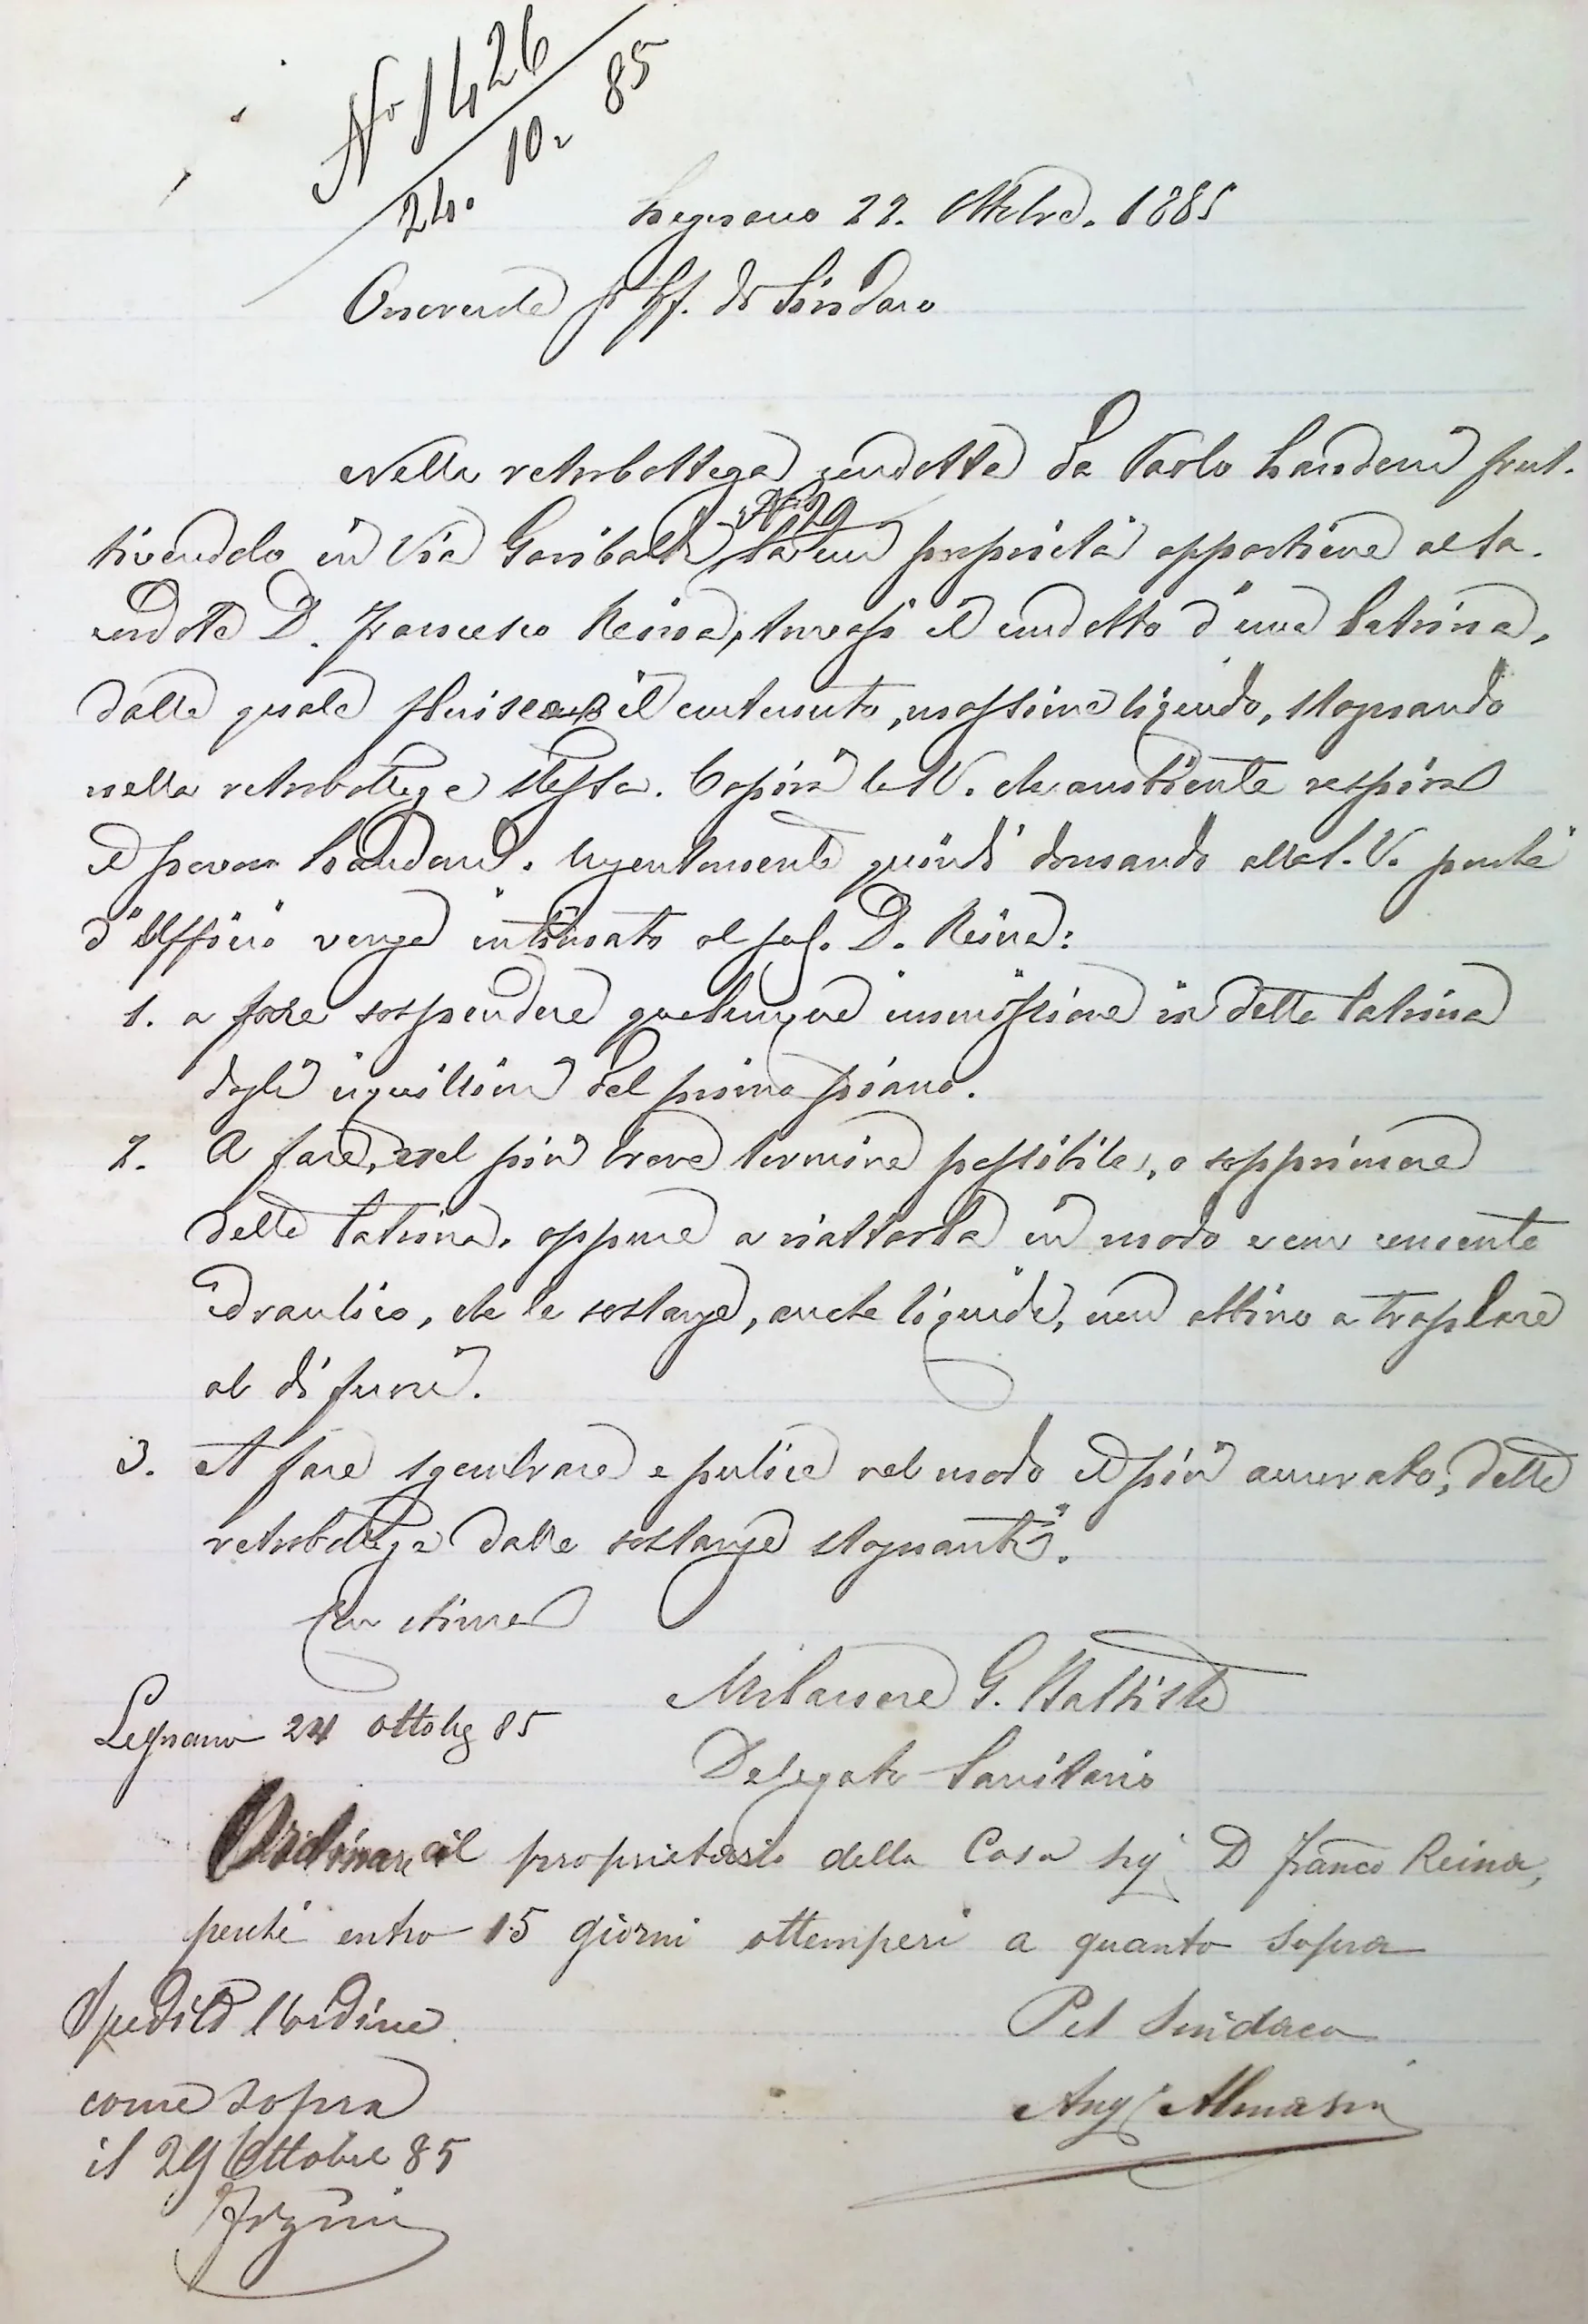 No 1426
24. 10. 85
Legnano 22. Ottobre. 1885
Onorevole ff. di Sindaco
Nella retrobottega condotta da Paolo Landoni frut-
tivendolo in Via Garibaldi N. 29 la cui proprietà appartiene al Sa-
cerdote D. Francesco Reina, trovasi il condotto d'una latrina,
dalla quale fluisce il contenuto, massime liquido, stagnando
nella retrobottega stessa. Capirà la S.V. che ambiente respira
il povero Landoni. Urgentemente quindi domando alla S.V. perché
d'Ufficio venga intimato al D. Reina:
1. a fare sospendere qualunque immissione in detta latrina
dagli inquilini del primo piano.
2. A fare, nel più breve termine possibile, o sopprimere
detta latrina, oppure a riattarla in modo e con cemento
idraulico, che le sostanze, anche liquide, non abbino a trapelare
al di fuori.
3. A fare sgombrare e pulire nel modo il più accurato, detta
retrobottega dalle sostanze stagnanti.
Con stima
Milanese G. Battista
Delegato Sanitario
Legnano 24 ottobre 85
Ordinare al proprietario della Casa sig D Franco Reina,
perché entro 15 giorni ottemperi a quanto sopra
Pel Sindaco
Ang Almasio
Spedito l'ordine
come sopra
il 29 Ottobre 85